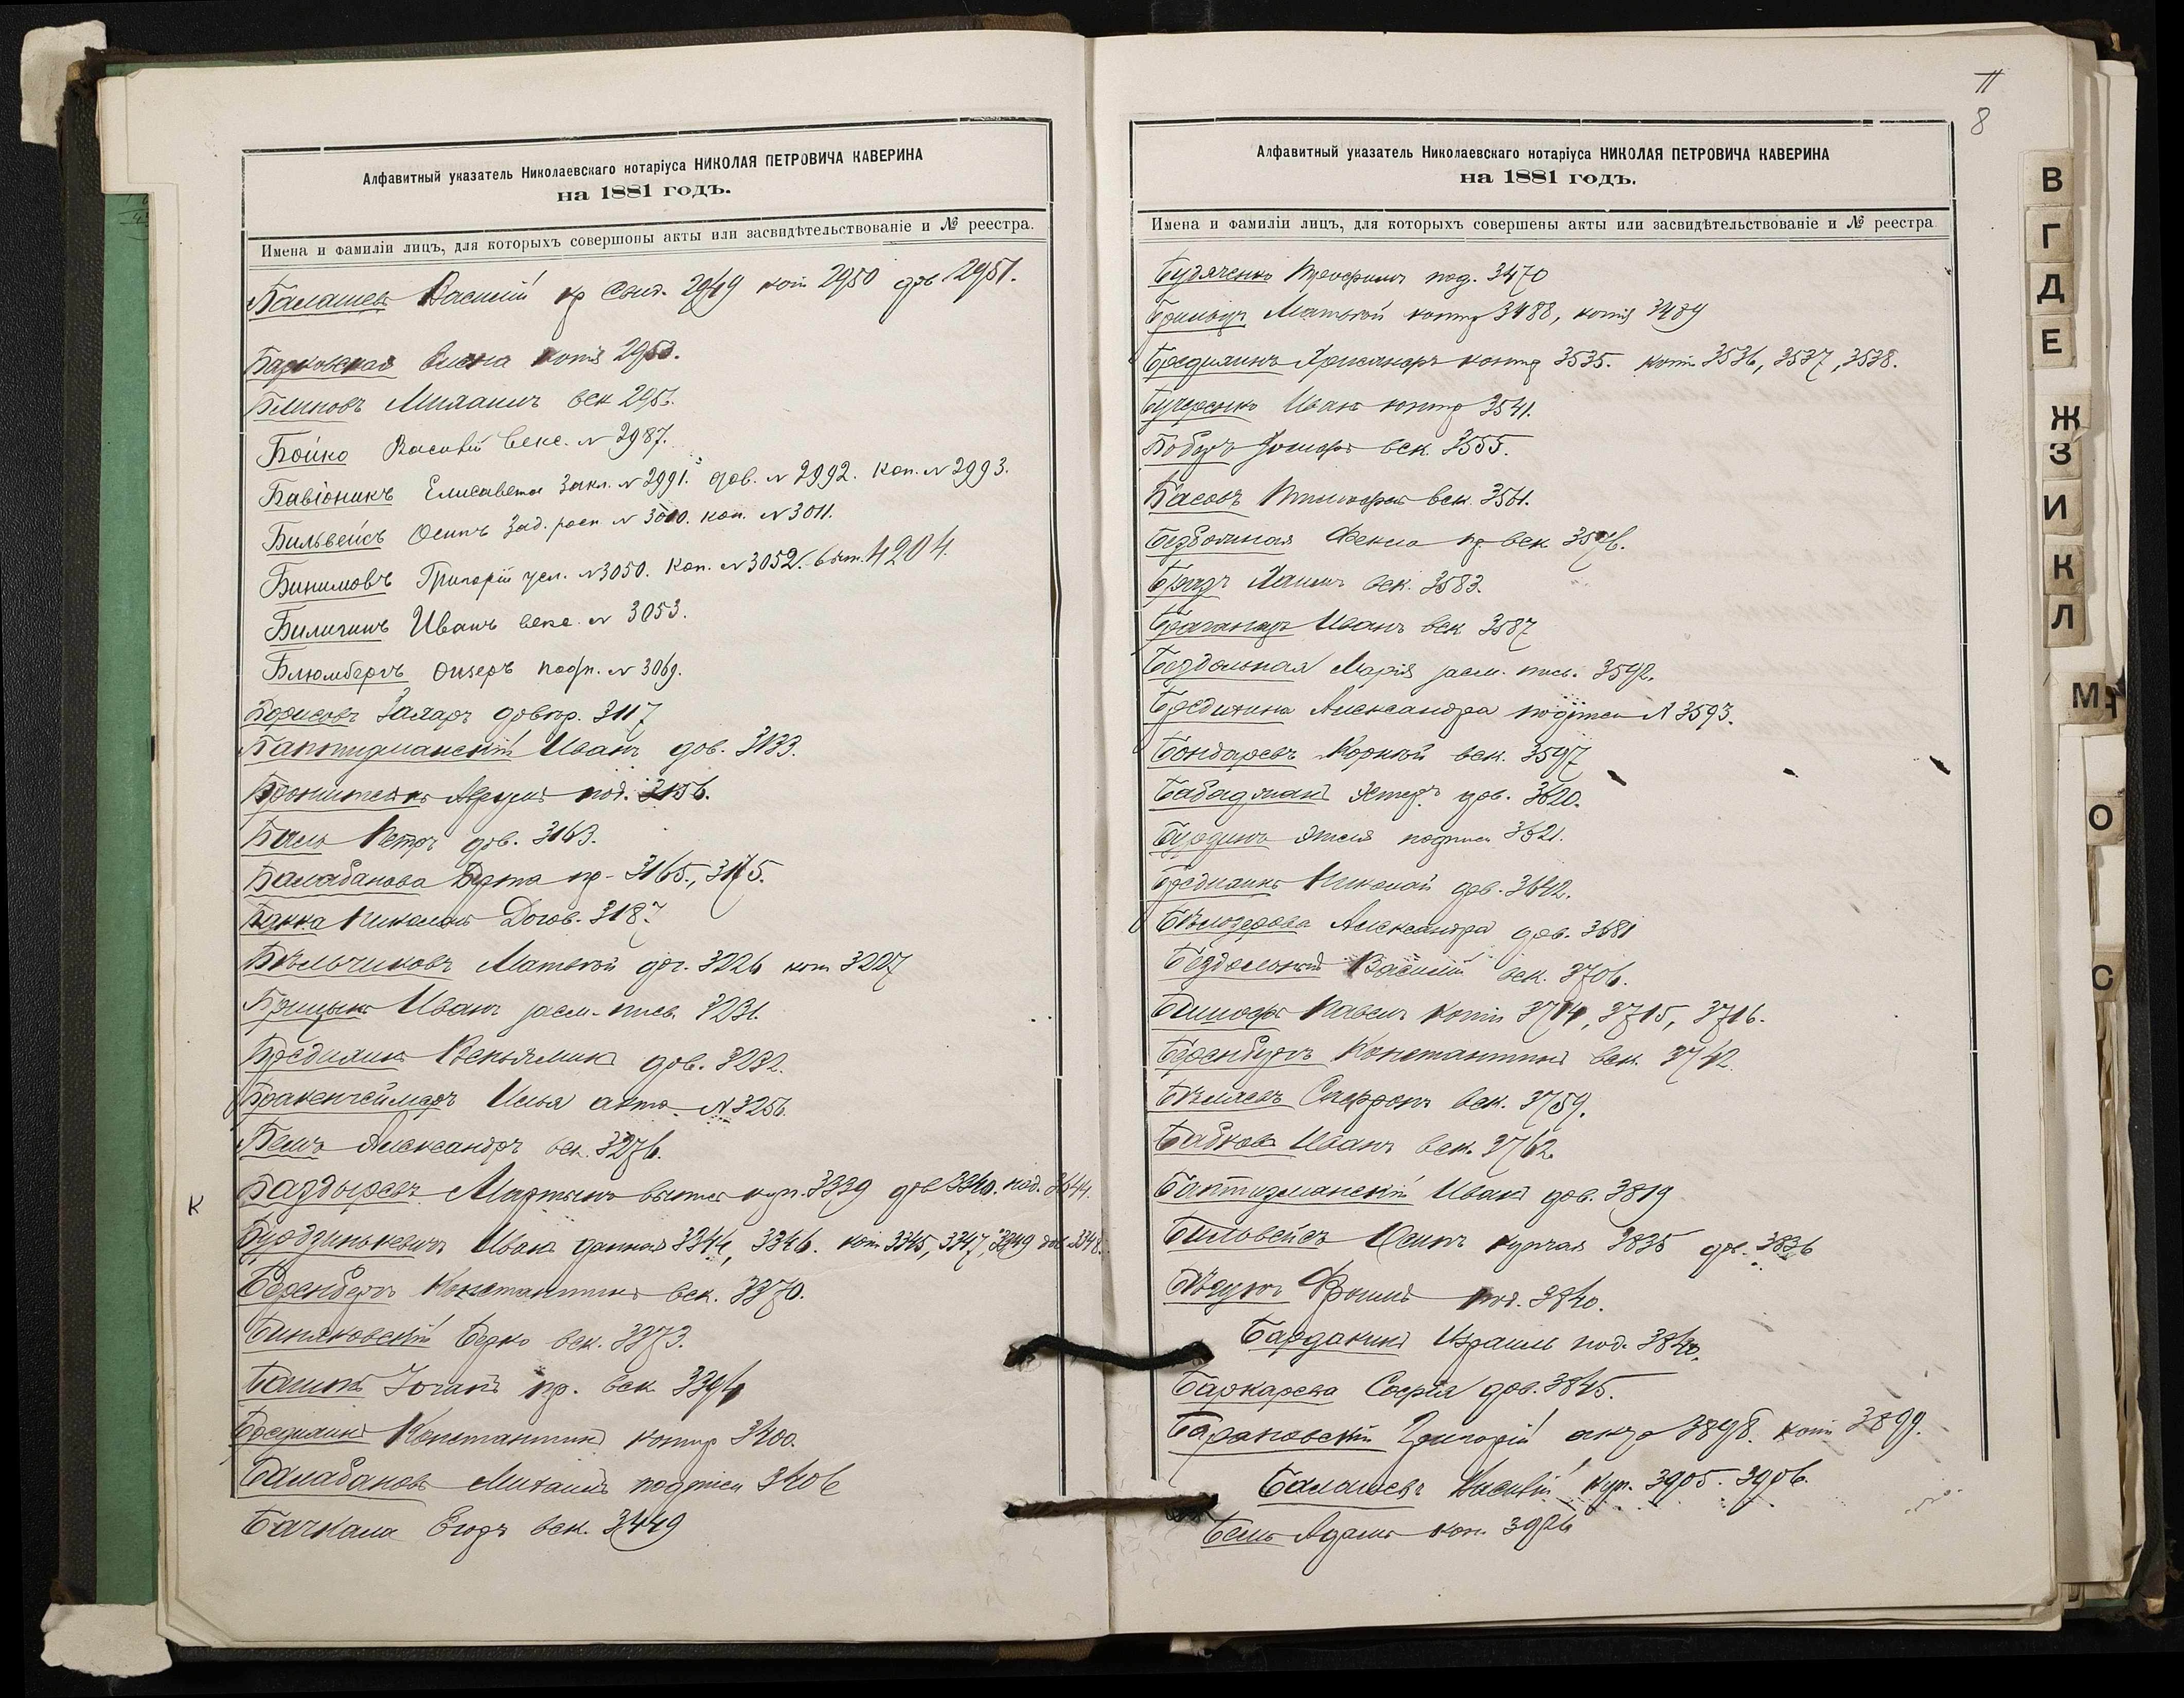 Алфавитный указатель Николаевскаго нотаріуса НИКОЛАЯ ПЕТРОВИЧА КАВЕРИНА
на 1881 годъ.
Имена и фамиліи лицъ, для которыхъ совершоны акты или засвидѣтельствованіе и № реестра.
Балашевъ Василій кр свид. 2949 коп 2950 дов 2951.
Барковская Елена копія 2953.
Блиновъ Михаилъ век 295
Бойко Василій векс. № 2987.
Бавіоникъ Елисавета Закл. № 2991. дов. № 2992. коп. № 2993.
Бильвейсъ Осипъ Зад. росп № 3010. коп. № 3011.
Бинимовъ Григорій усл. № 3050. коп. № 3052. 4204.
Биличинъ Иванъ векс. № 3053.
Блюмбергъ Ойзеръ подп. № 3069.
Борисовъ Захаръ 3117
Баптизманскій Иванъ дов. 3133.
Бронштейнъ под. 3156.
Баль Петръ дов. 3163.
Балабанова пр. 3165, 3175.
Николай Догов. 3187
Бѣльчиковъ Матвѣй дог. 3226 коп 3227
Брицынъ Иванъ засм. пись. 3231.
Бредихинъ Веньяминъ дов. 3232.
Бракенгеймеръ Илья актъ № 3256
Бемъ Александръ век. 3276.
К
Баздыревъ Мартынъ выпись куп. 3339 дов 3340. под. 3644.
Бурдзинкевичъ Иванъ данная 3344, 3346. коп 3345, 3347, 3349 дов 3348.
Беренбергъ Константинъ век. 3370.
Биняковскій Берко век. 3373.
Іоганъ пр. век 3394
Бредихинъ Константинъ контр 3400.
Балабановъ Михаилъ подписи 3406
Бачкала Егоръ век. 3449
11
8
Алфавитный указатель Николаевскаго нотаріуса НИКОЛАЯ ПЕТРОВИЧА КАВЕРИНА
на 1881 годъ.
Имена и фамиліи лицъ, для которыхъ совершены акты или засвидѣтельствованіе и № реестра
Будяченко Трофимъ под. 3470
Матвѣй контр 3488, копія 3489
Бредихинъ контр 3535. коп 3536, 3537, 3538.
Бучеренко Иванъ контр 3541.
Боберъ век. 3555.
Басовъ век. 3561.
Бездольная Фекла пр. век 3576.
Хаимъ век. 3583.
Иванъ век 3587
Бездольная Марія засм. пись. 3592.
Бредихина Александра подписи № 3593.
Бондаревъ Корнѣй век. 3597
Бабаджанъ дов. 3620.
подписи 3621.
Бредихинъ Николай дов. 3642.
Бѣлозерова Александра дов. 3681
Бездольный Василій век. 3706.
Павелъ копія 3714, 3715, 3716.
Беренбергъ Константинъ век. 3742.
Бѣляевъ Сафронъ век. 3759.
Бабковъ Иванъ век. 3762.
Баптизманскій Иванъ дов. 3819
Бильвейсъ Осипъ купчая 3835 дов. 3836
под. 3840.
Бардакинъ Израиль под. 3840.
Баркарева Софія дов. 3845.
Барановскій Григорій актъ 3898. коп 3899.
Балашевъ Василій куп. 3905. 3906.
Бемъ Адамъ коп. 3926
В
Г
Д
Е
Ж
З
И
К
Л
М
О
С